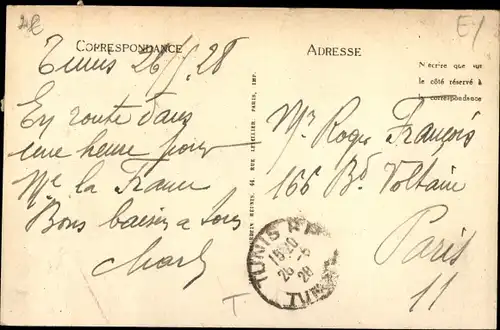 CORRESPONDANCE
ADRESSE
N'écrire que sur
le côté réservé à
la correspondance
Tunis 26/5 28
En route dans
une heure pour
la France
Bons baisers à tous
Mr Roger François
166 Bd. Voltaire
Paris
11
TUNIS R.P.
15 20
26 - 5
28
T